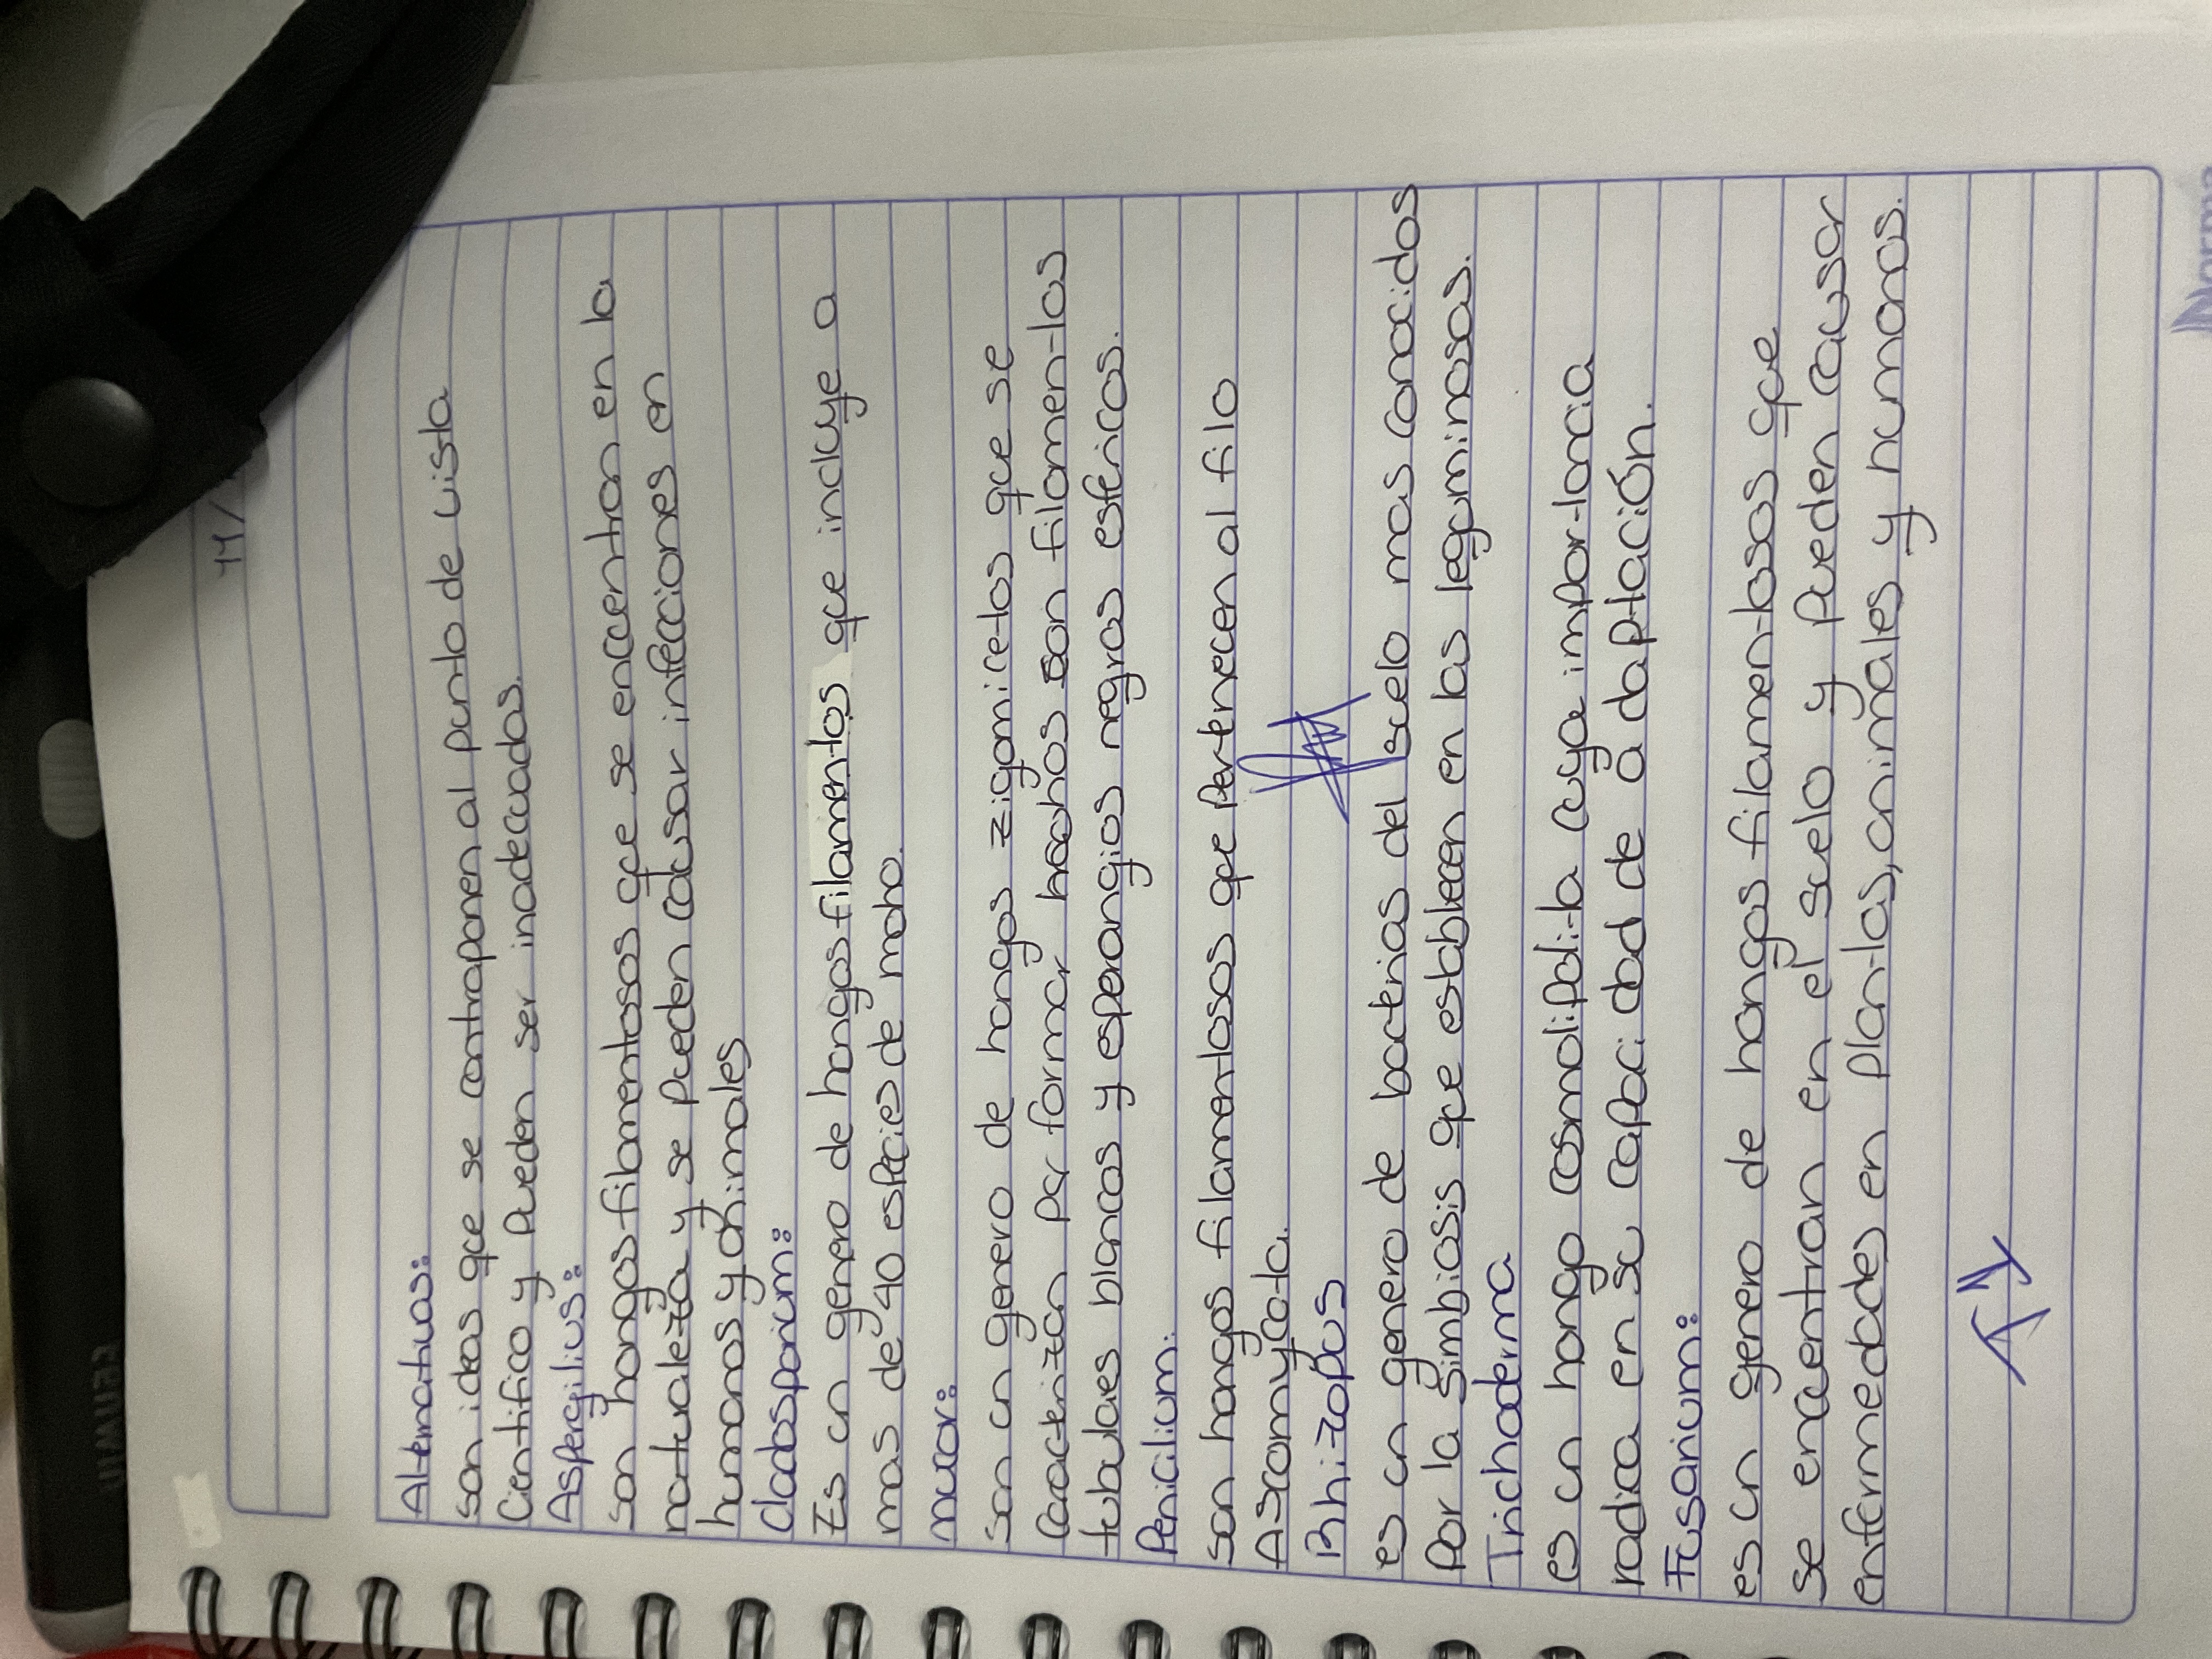 14/
Alternativas:
son ideas que se contraponen al punto de vista
Científico y pueden ser inadecuadas.
Aspergilius:
son hongos filamentosos que se encuentran en la
naturaleza y se pueden causar infecciones en
humanos y animales
Cladosporium:
Es un genero de hongos filamentos que incluye a
mas de 40 especies de moho.
mucor:
son un genero de hongos zigomicetos que se
Caracterizan por formar hechos son filamentos
tubulares blancos y esporangios negros esféricos.
Penicilium:
son hongos filamentosos que Pertenecen al filo
Ascomycota.
Rhizopus
es un genero de bacterias del suelo mas conocidos
Por la simbiosis que establecen en las leguminosas.
Trichoderma
es un hongo cosmolipolita cuya importancia
radica en su capacidad de adaptación.
Fusarium:
es un genero de hongos filamentosos que
se encuentran en el suelo y pueden causar
enfermedades en plantas, animales y humanos.
Norma